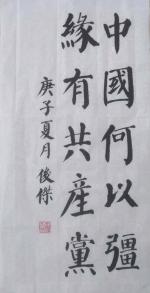 中國何以彊
緣有共產黨
庚子夏月俊傑